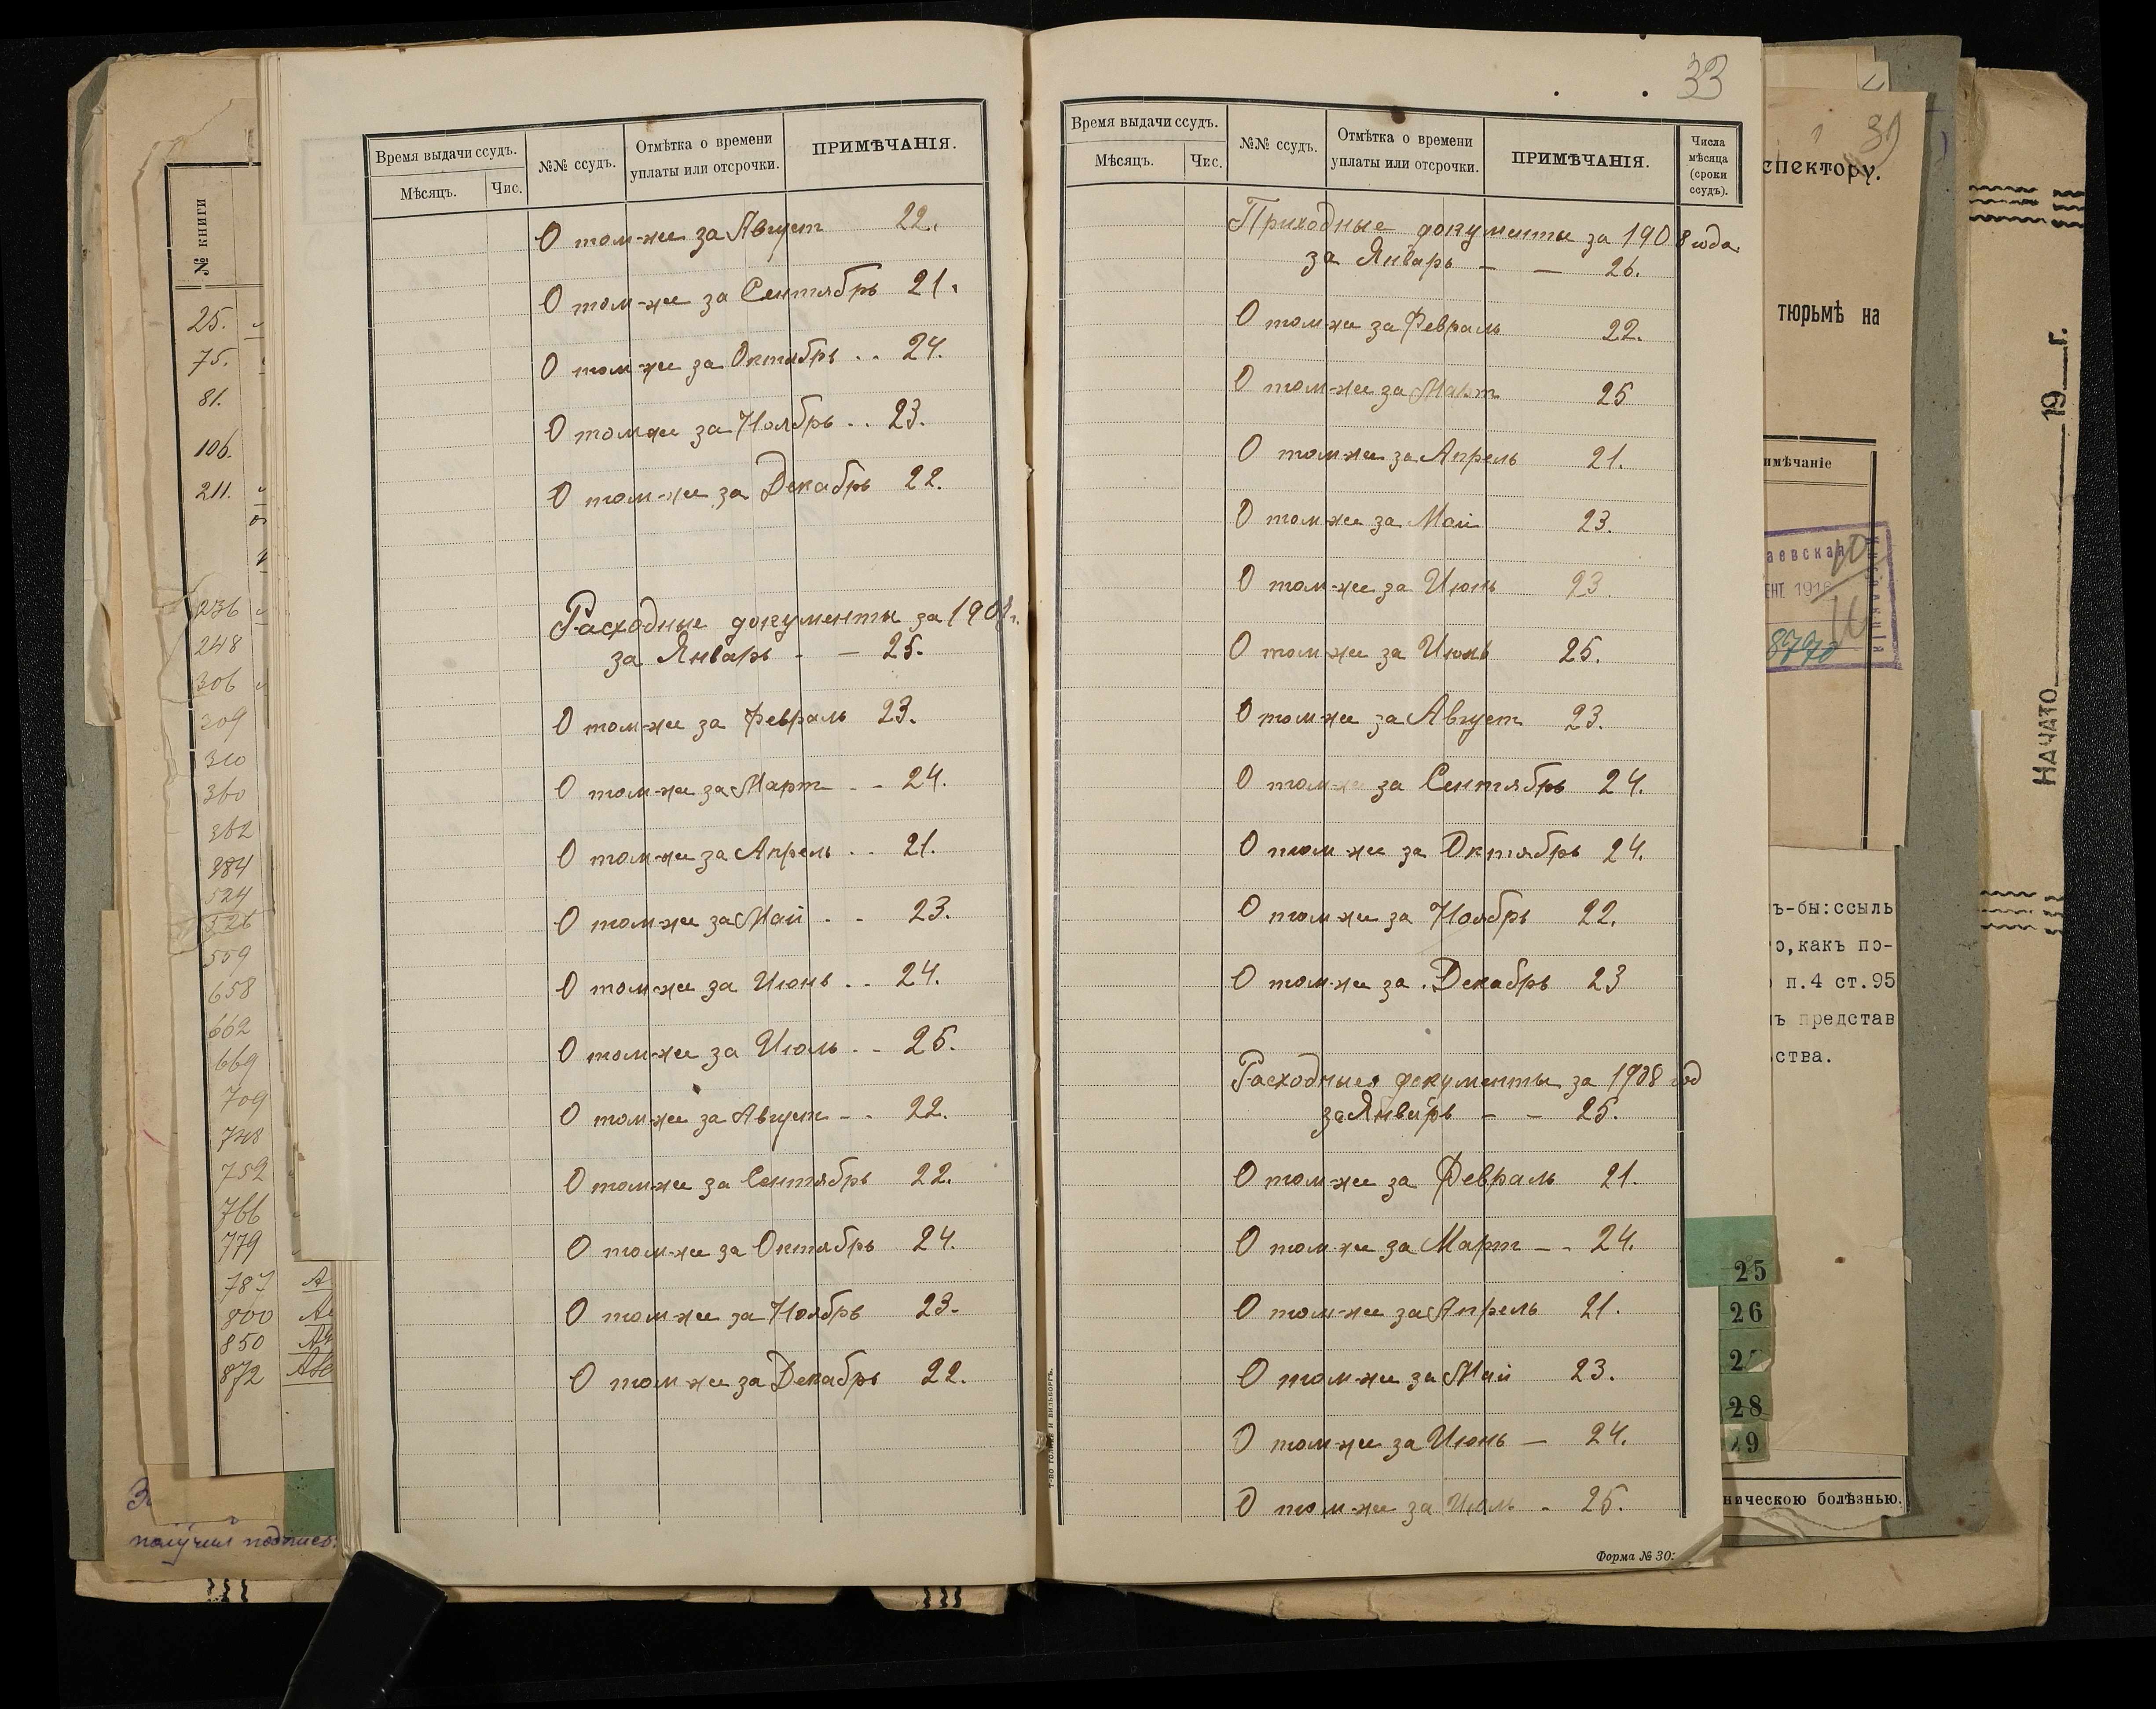 № книги
25.
75.
81.
106.
211.
236
248
306
309
310
360
362
384
524
526
559
658
662
669
709
748
752
766
779
787 А
800
850
872
получил
Время выдачи ссудъ.
Мѣсяцъ.
Чис.
№№ ссудъ.
Отмѣтка о времени
уплаты или отсрочки.
ПРИМѢЧАНІЯ.
О том-же за Август 22.
О том-же за Сентябрь 21.
О том же за Октябрь .. 24.
О том же за Ноябрь .. 23.
О том-же за Декабрь 22.
Расходные документы за
за Январь - — 25.
О том-же за Февраль 23.
О том-же за Март - - 24.
О том-же за Апрель .. 21.
О том-же за Май . - 23.
О том-же за Июнь .. 24.
О том-же за Июль .. 25.
О том-же за Август - - 22.
О том-же за Сентябрь 22.
О том-же за Октябрь 24.
О том-же за Ноябрь 23.
О том же за Декабрь 22.
33
Время выдачи ссудъ.
Мѣсяцъ.
Чис.
№№ ссудъ.
Отмѣтка о времени
уплаты или отсрочки.
ПРИМѢЧАНІЯ.
Числа
мѣсяца
(сроки
ссудъ).
Приходные документы за 1908 года
за Январь — — 26.
О том же за Февраль 22.
О том-же за Март 25
О том же за Апрель 21.
О том же за Май 23.
О том-же за Июнь 23.
О том же за Июль 25.
О том-же за Август 23.
О том-же за Сентябрь 24.
О том же за Октябрь 24.
О том же за Ноябрь 22.
О том-же за Декабрь 23
Расходные документы за 1908 год
за Январь — — 25.
О том-же за Февраль 21.
О том-же за Март — - 24.
О том-же за Апрель 21.
О том-же за Май 23.
О том-же за Июнь — 24.
О том-же за Июль - 25.
Форма № 30
спектору.
тюрьмѣ на
имѣчаніе
аевская
ЕНТ 1916
8770
ъ-бы:ссыль
о,какъ по-
п.4 ст.95
ъ представ
ства.
25
26
28
29
ническою болѣзнью.
НАЧАТО 19 г.